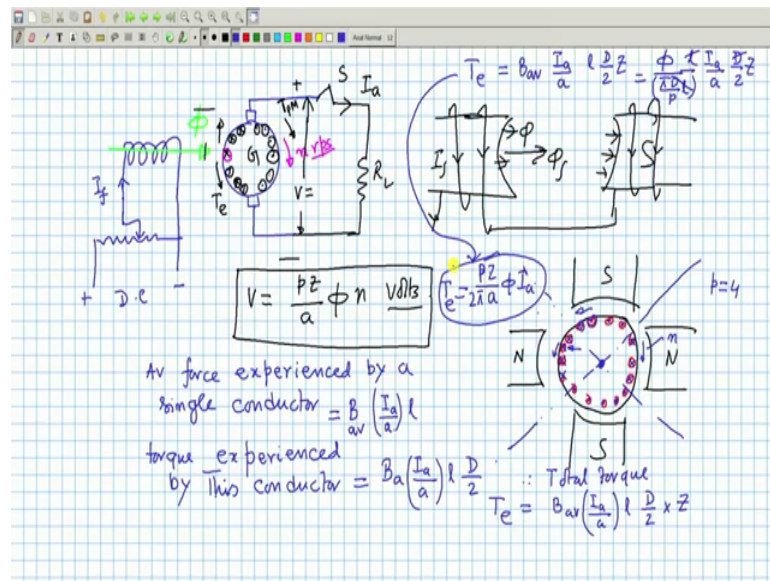 Arial Normal 12
T_e = B_av I_a/a l D/2 Z = ϕ/(πD/p l) l I_a/a D/2 Z
S
I_a
+
T_PM
ϕ
G
n rps
R_L
V=
T_e
I_f
+ D.C -
-
I_f
ϕ
ϕ_f
S
V = pZ/a ϕ n Volts
T_e = pZ/2πa ϕ I_a
S
p=4
N
n
N
S
Av force experienced by a
single conductor = B_av (I_a/a) l
torque experienced
by This conductor = B_a (I_a/a) l D/2
∴ Total torque
T_e = B_av (I_a/a) l D/2 × Z